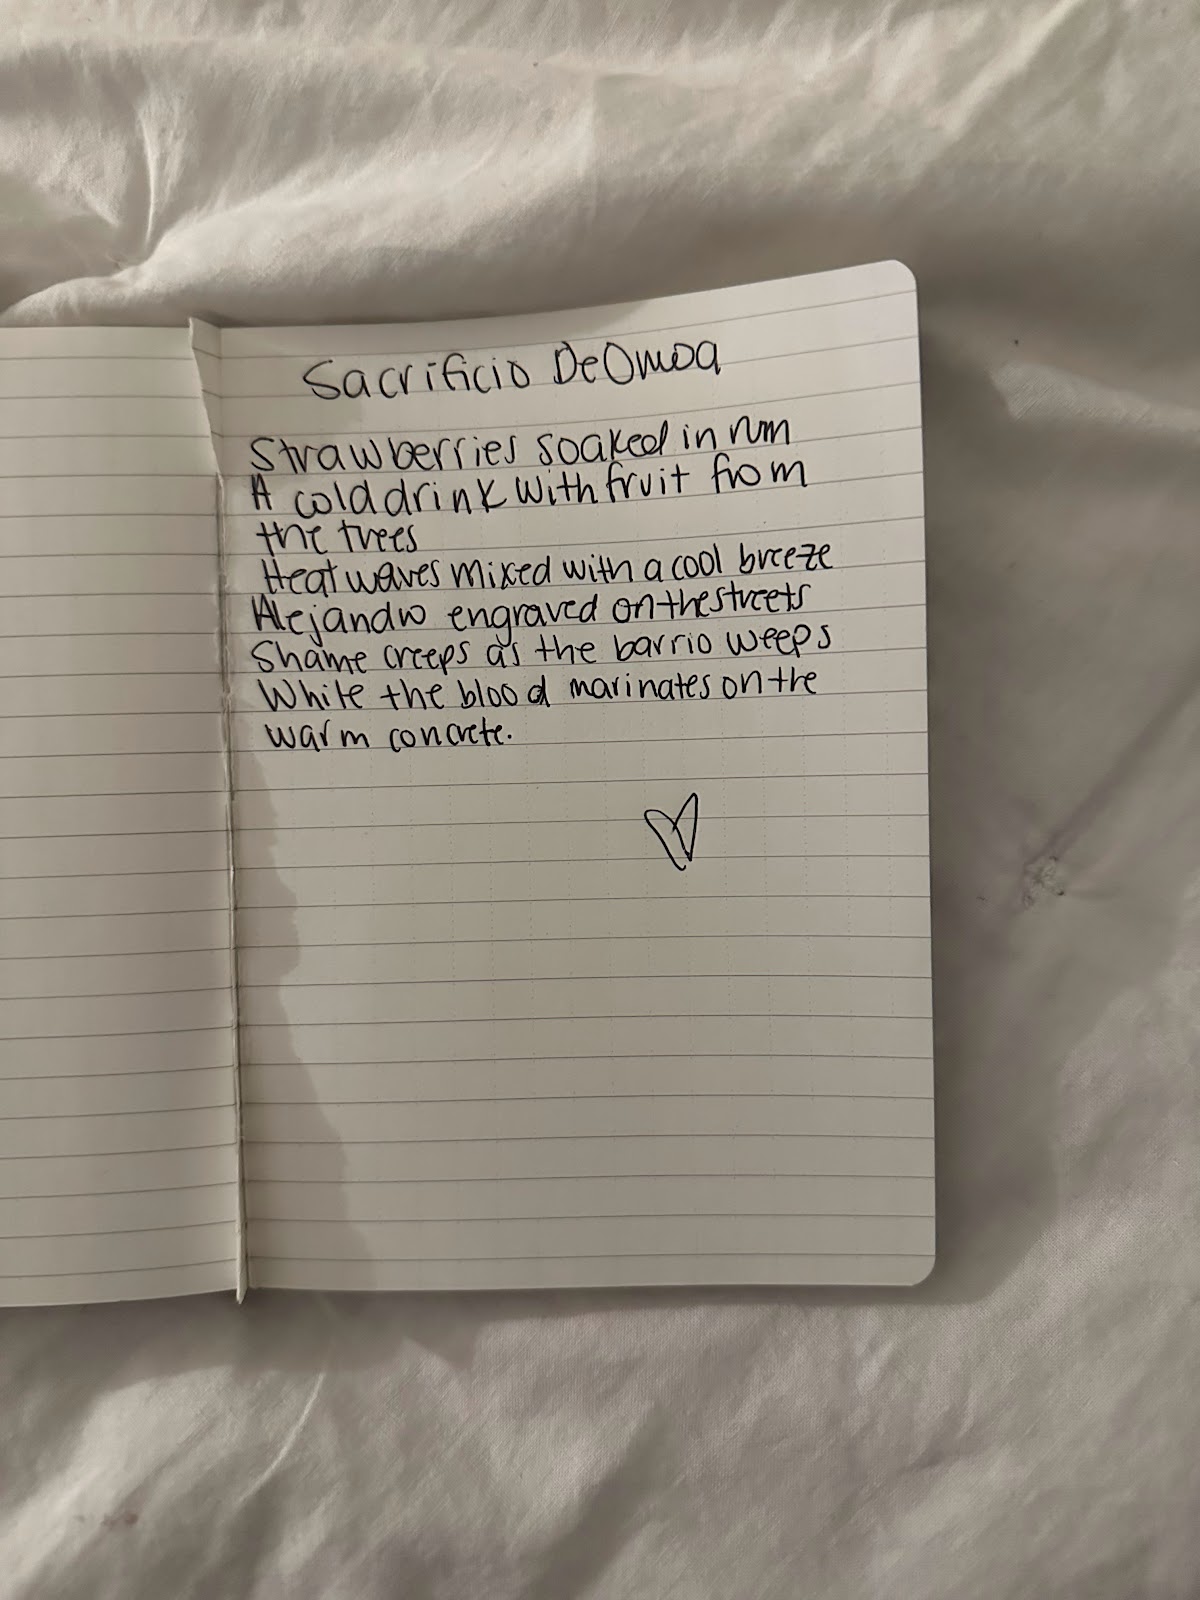 Sacrificio De Omoa
Strawberries soaked in rum
A cold drink with fruit from
the trees
Heat waves mixed with a cool breeze
Alejandro engraved on the streets
Shame creeps as the barrio weeps
While the blood marinates on the
warm concrete.